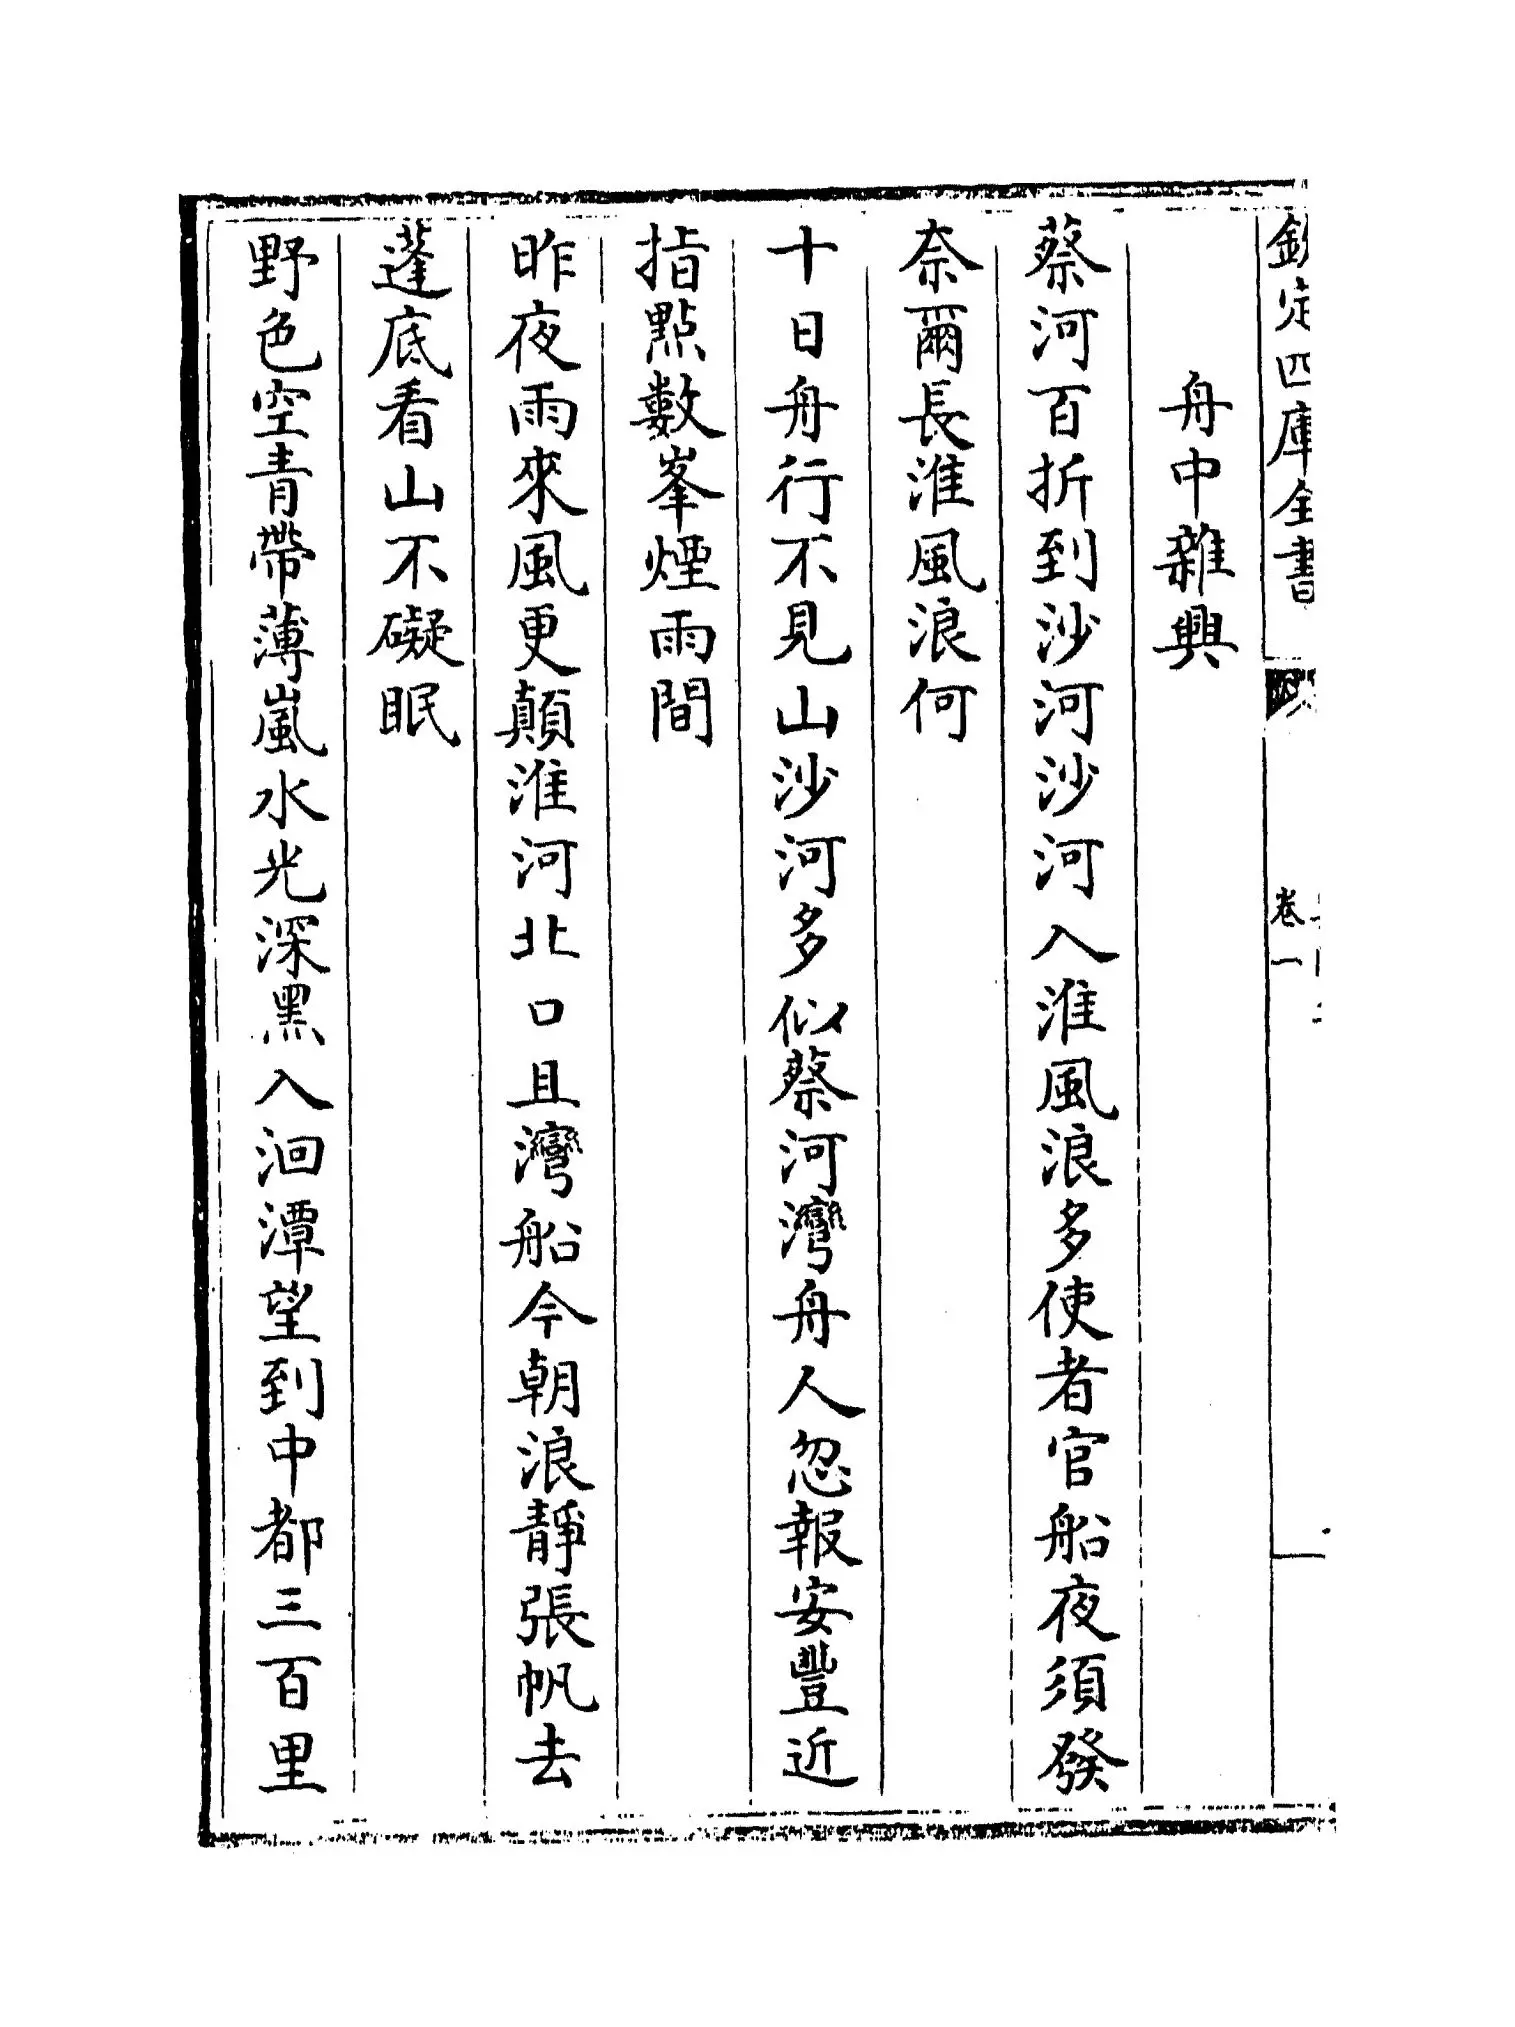 欽定四庫全書
卷一
舟中雜興
蔡河百折到沙河沙河入淮風浪多使者官船夜須發
奈爾長淮風浪何
十日舟行不見山沙河多似蔡河灣舟人忽報安豐近
指點數峯煙雨間
昨夜雨來風更顛淮河北口且灣船今朝浪靜張帆去
蓬底看山不礙眠
野色空青帶薄嵐水光深黑入洄潭望到中都三百里